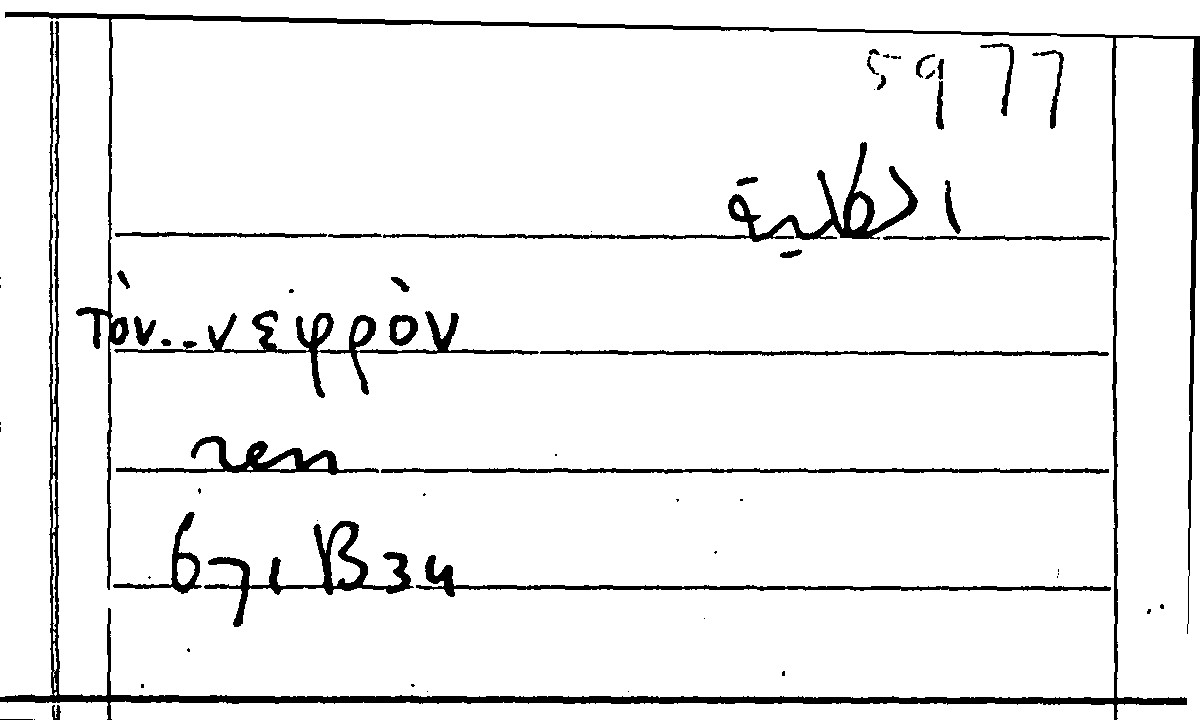 5977
الكلية
τὸν..νεφρὸν
ren
671 B 34